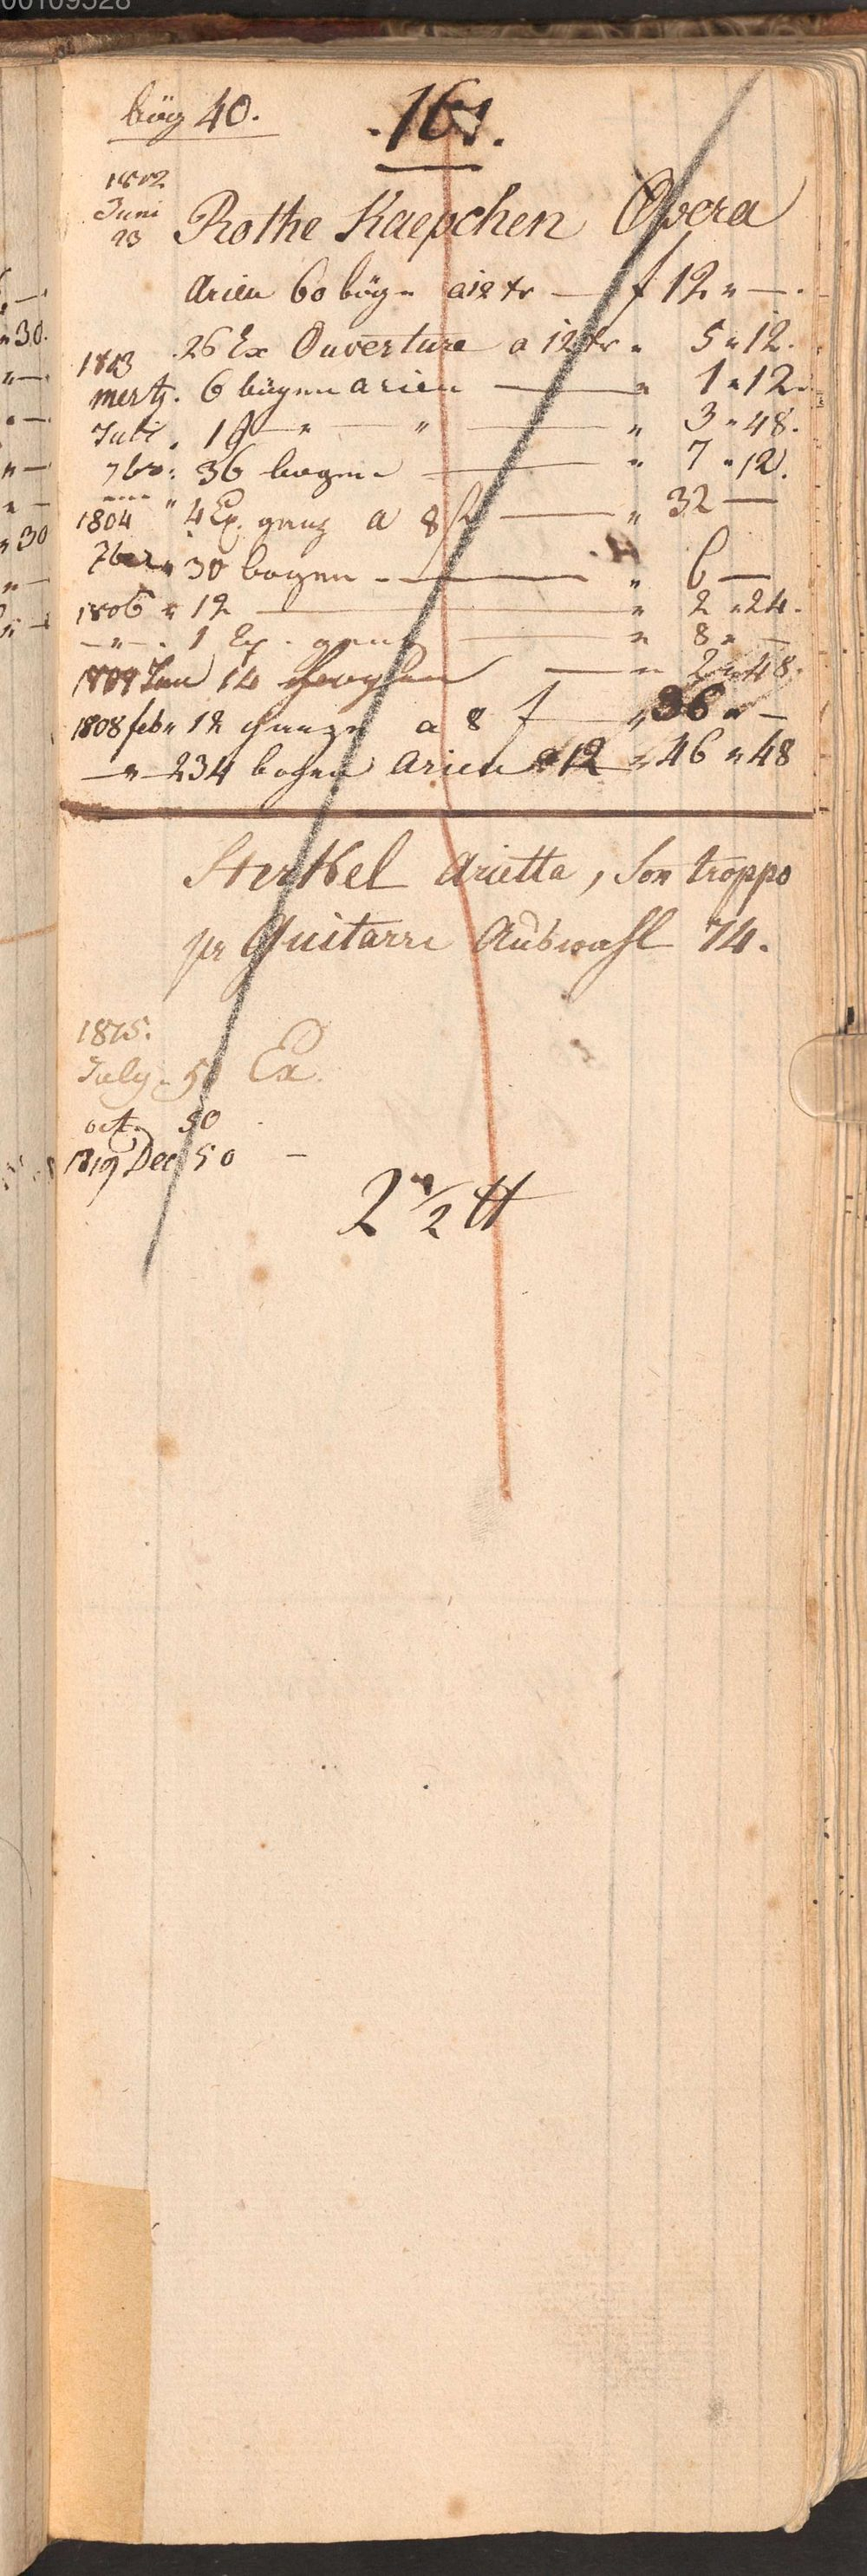 00109528
bög 40. 161.
1802
Juni
23 Rothe Kaepchen Opera
Arien 60 bög a 12 xr — f 12 " — .
26 Ex Ouverture a 12 xr " 5 " 12.
1803
mertz. 6 bögen arien — " 1 " 12
Juli . 19 — " — " — " 3 " 48.
7br: 36 bogen — " 7 " 12.
1804 " 4 Ex. ganz a 8 f — " 32 —
7ber " 30 bogen — " 6 —
1806 " 12 — " 2 " 24.
— " — . 1 Ex. ganz — " 8 " —
Jan 14 — " 2 " 48.
1808 feb " 12 ganze a 8 f — " 36 " —
— " — 234 bogen Arien a 12 — " 46 " 48
Sterkel Arietta, Son troppo
pr Guitarre Auswahl 74.
1815.
July. 50 Ex.
oct. 50
1819 Dec 50 —
2 1/2 tt